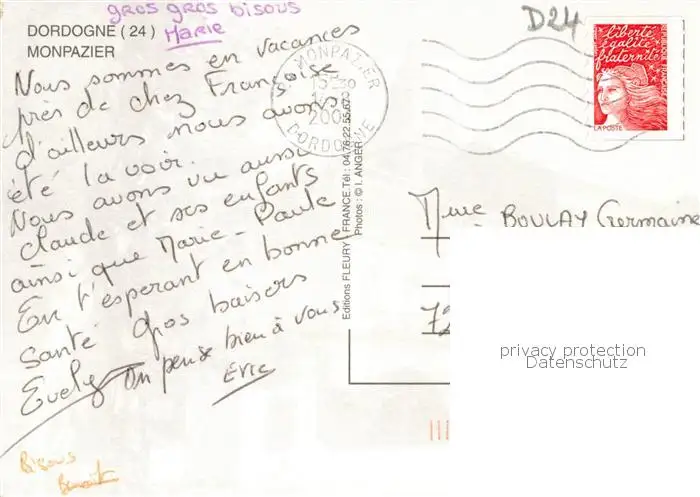 gros gros bisous
Marie
DORDOGNE (24)
MONPAZIER
Nous sommes en vacances
près de chez Françoise
d'ailleurs nous avons
été la voir.
Nous avons vu aussi
Claude et ses enfants
ainsi que Marie-Paule
En t'esperant en bonne
santé Gros baisers
Evelyn On pense bien à vous
Eric
Bisous
Benoit
MONPAZIER
DORDOGNE
Editions FLEURY - FRANCE. Tél : 04.76.22.55.67
Photos : © I. ANGER
D24
liberté
égalité
fraternité
LA POSTE
Mme BOULAY Germaine
72
privacy protection
Datenschutz